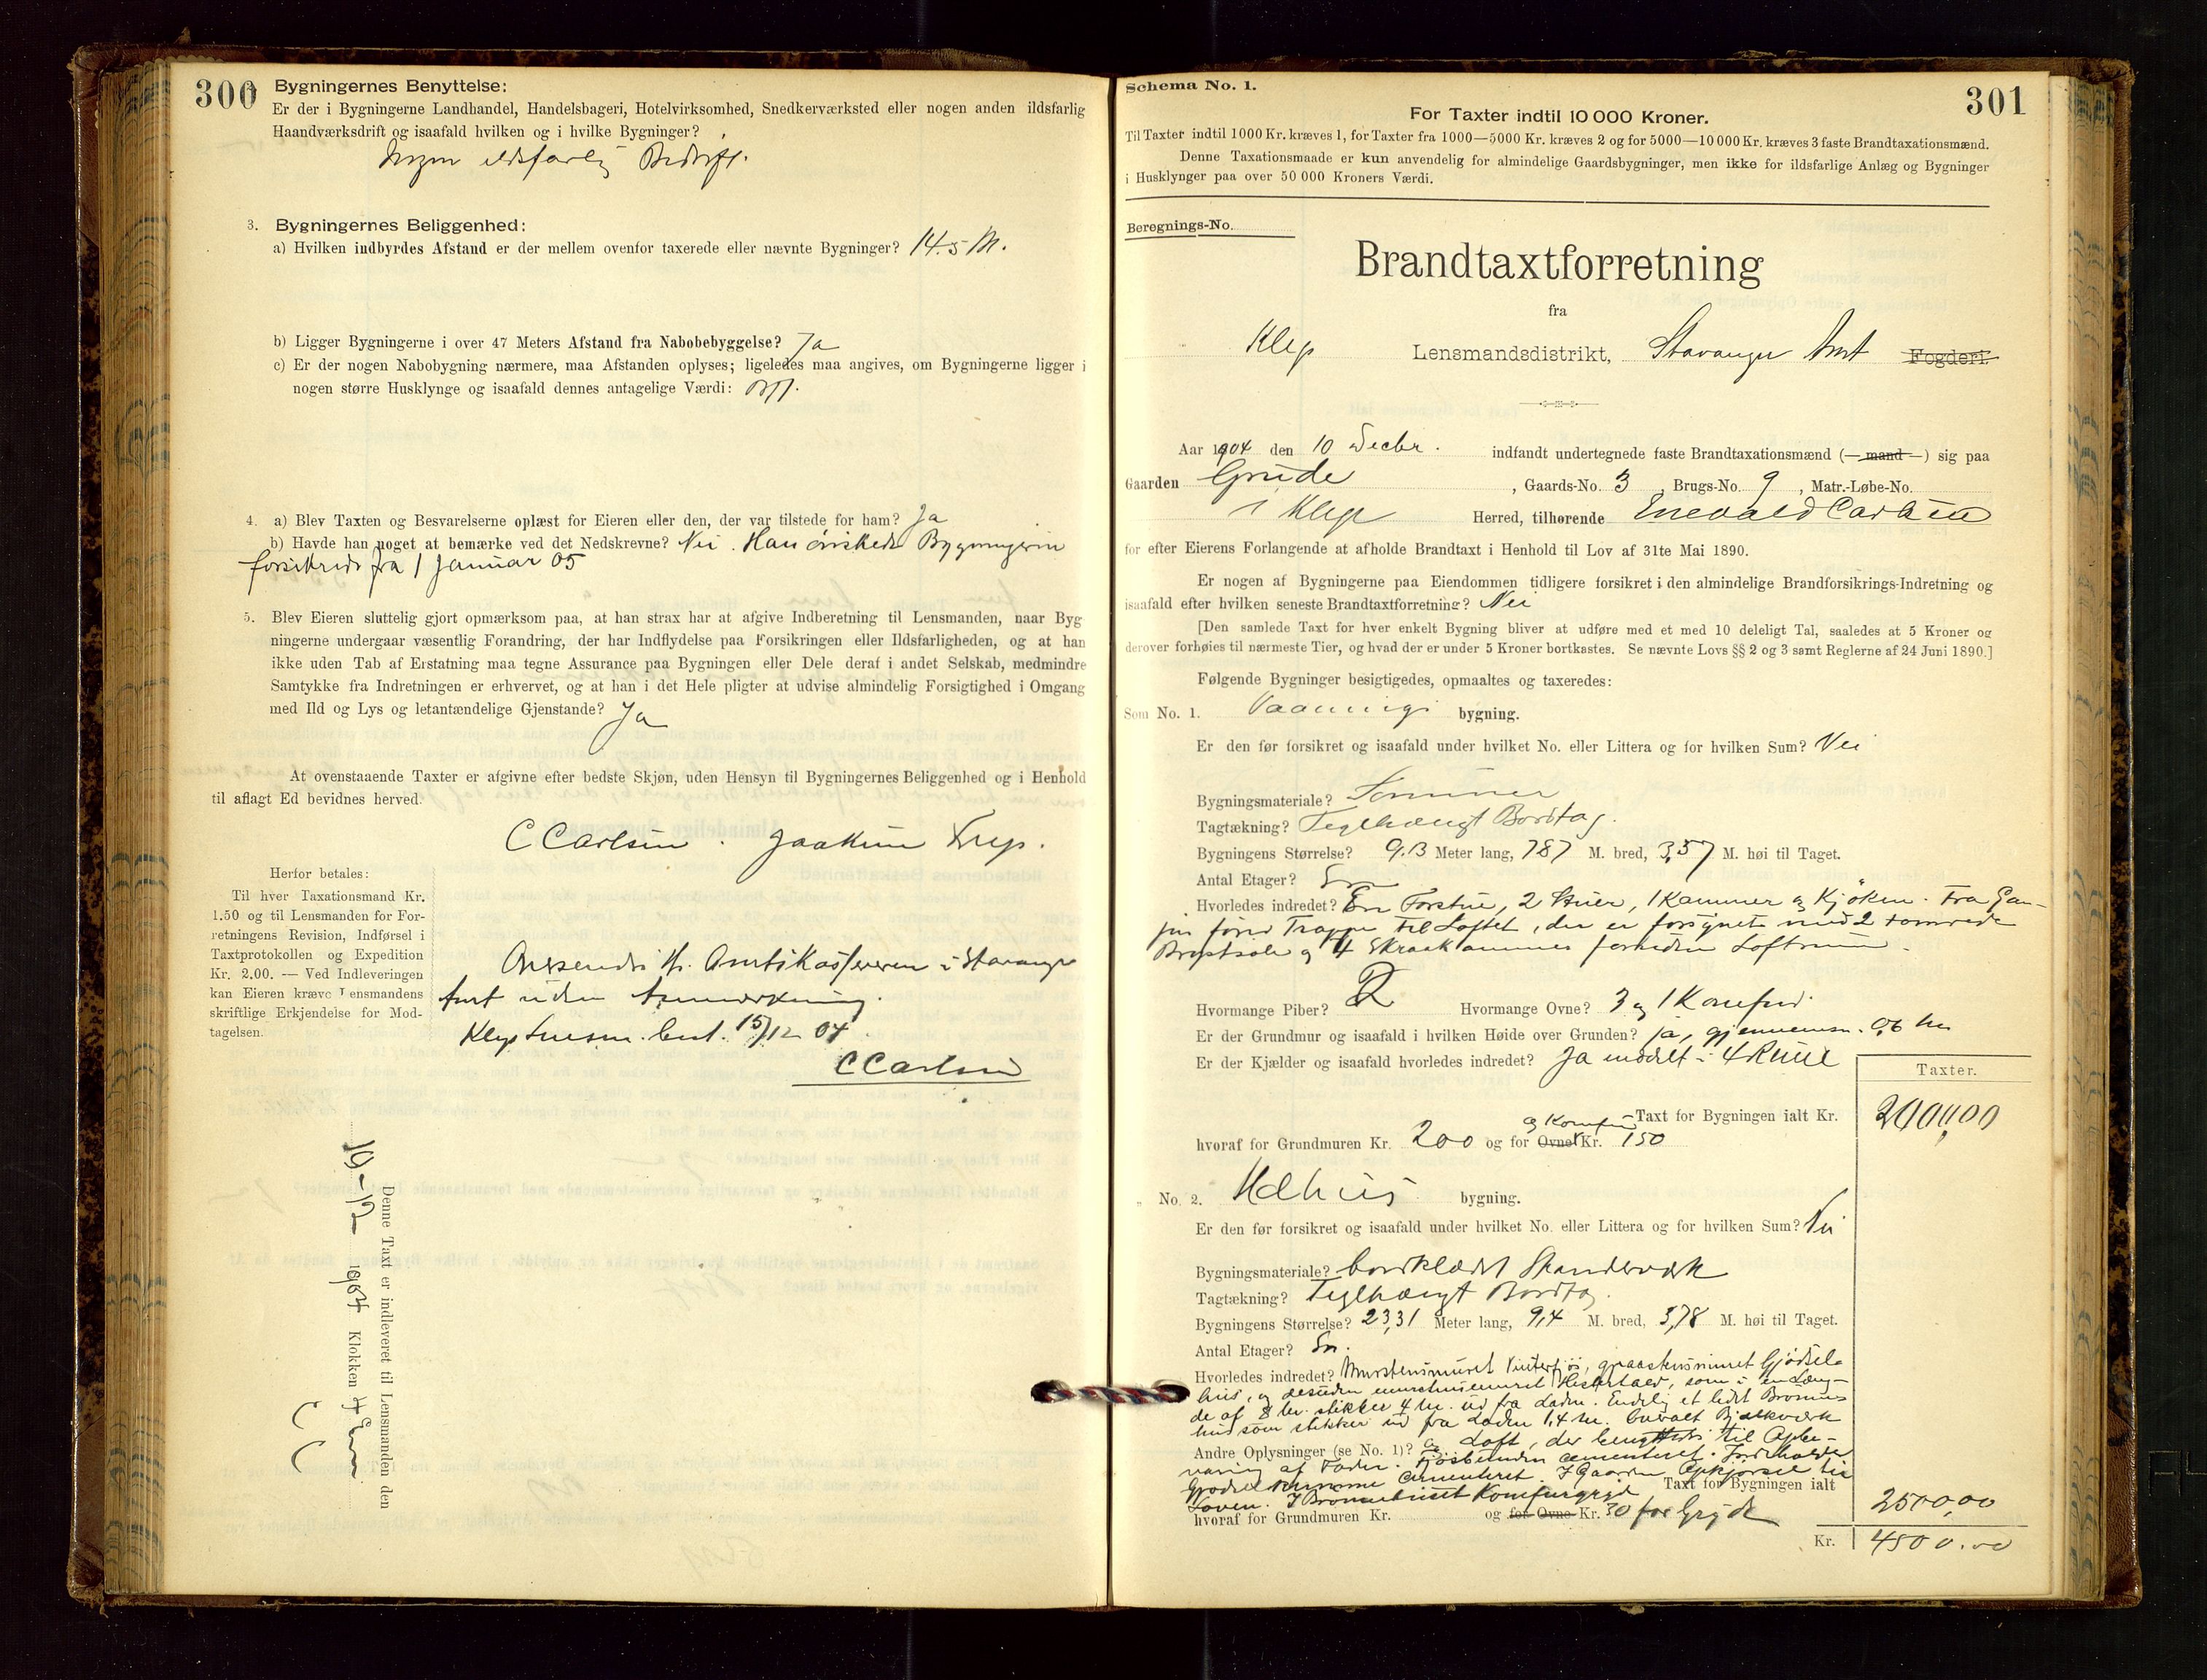 300
Bygningernes Benyttelse:
Er der i Bygningerne Landhandel, Handelsbageri, Hotelvirksomhed, Snedkerværksted eller nogen anden ildsfarlig
Haandværksdrift og isaafald hvilken og i hvilke Bygninger?
Ingen ildsfarlig Bedrift.
3. Bygningernes Beliggenhed:
a) Hvilken indbyrdes Afstand er der mellem ovenfor taxerede eller nævnte Bygninger? 14.5 M.
b) Ligger Bygningerne i over 47 Meters Afstand fra Nabobebyggelse? Ja
c) Er der nogen Nabobygning nærmere, maa Afstanden oplyses; ligeledes maa angives, om Bygningerne ligger i
nogen større Husklynge og isaafald dennes antagelige Værdi:
4. a) Blev Taxten og Besvarelserne oplæst for Eieren eller den, der var tilstede for ham? Ja
b) Havde han noget at bemærke ved det Nedskrevne? Nei. Han ønskede Bygningerne
forsikrede fra 1 Januar 05
5. Blev Eieren sluttelig gjort opmærksom paa, at han strax har at afgive Indberetning til Lensmanden, naar Byg
ningerne undergaar væsentlig Forandring, der har Indflydelse paa Forsikringen eller Ildsfarligheden, og at han
ikke uden Tab af Erstatning maa tegne Assurance paa Bygningen eller Dele deraf i andet Selskab, medmindre
Samtykke fra Indretningen er erhvervet, og at han i det Hele pligter at udvise almindelig Forsigtighed i Omgang
med Ild og Lys og letantændelige Gjenstande? Ja
At ovenstaaende Taxter er afgivne efter bedste Skjøn, uden Hensyn til Bygningernes Beliggenhed og i Henhold
til aflagt Ed bevidnes herved.
C Carlsen. Joakim
Herfor betales:
Til hver Taxationsmand Kr.
1.50 og til Lensmanden for For-
retningens Revision, Indførsel i
Taxtprotokollen og Expedition
Kr. 2.00. — Ved Indleveringen
kan Eieren kræve Lensmandens
skriftlige Erkjendelse for Mod-
tagelsen.
Oversendes Hr. Amtskassereren i Stavanger
Amt uden Anmerkning.
Klep 15/12 04.
C Carlsen
Denne Taxt er indleveret til Lensmanden den
10-12 1904 Klokken 4 Em
C C
Schema No. 1.
301
For Taxter indtil 10 000 Kroner.
Til Taxter indtil 1000 Kr. kræves 1, for Taxter fra 1000—5000 Kr. kræves 2 og for 5000—10 000 Kr. kræves 3 faste Brandtaxationsmænd.
Denne Taxationsmaade er kun anvendelig for almindelige Gaardsbygninger, men ikke for ildsfarlige Anlæg og Bygninger
i Husklynger paa over 50 000 Kroners Værdi.
Beregnings-No.
Brandtaxtforretning
fra
Klep Lensmandsdistrikt, Stavanger Amt Fogderi.
Aar 1904 den 10 Decbr. indfandt undertegnede faste Brandtaxationsmænd (— mand —) sig paa
Gaarden Grude, Gaards-No. 3, Brugs-No. 9, Matr.-Løbe-No.
i Klep Herred, tilhørende Enevald Carlsen
for efter Eierens Forlangende at afholde Brandtaxt i Henhold til Lov af 31te Mai 1890.
Er nogen af Bygningerne paa Eiendommen tidligere forsikret i den almindelige Brandforsikrings-Indretning og
isaafald efter hvilken seneste Brandtaxtforretning? Nei
[Den samlede Taxt for hver enkelt Bygning bliver at udføre med et med 10 deleligt Tal, saaledes at 5 Kroner og
derover forhøies til nærmeste Tier, og hvad der er under 5 Kroner bortkastes. Se nævnte Lovs §§ 2 og 3 samt Reglerne af 24 Juni 1890.]
Følgende Bygninger besigtigedes, opmaaltes og taxeredes:
Som No. 1. Vaanings bygning.
Er den før forsikret og isaafald under hvilket No. eller Littera og for hvilken Sum? Nei
Bygningsmateriale? Tømmer
Tagtækning? Teglhængt Bordtag.
Bygningens Størrelse? 9.13 Meter lang, 7.87 M. bred, 3,57 M. høi til Taget.
Antal Etager? En
Hvorledes indretet? En Forstue, 2 Stuer, 1 Kammer og Kjøken. Fra Gan-
gen fører Trappe til Loftet, der er forsynet med 2 tømrede
og 4 Skraakammer foruden Loftrum.
Hvormange Piber? 2 Hvormange Ovne? 3 og 1 Komfur.
Er der Grundmur og isaafald i hvilken Høide over Grunden? ja, gjennemsn. 0,6 M
Er der Kjælder og isaafald hvorledes indredet? Ja inddelt i 4 Rum
Taxter.
Taxt for Bygningen ialt Kr. 2000,00
hvoraf for Grundmuren Kr. 200 og for Ovne og Komfur Kr. 150
" No. 2. Udhus bygning.
Er den før forsikret og isaafald under hvilket No. eller Littera og for hvilken Sum? Nei
Bygningsmateriale? bordklædt Standerværk
Tagtækning? Teglhængt Bordtag.
Bygningens Størrelse? 23,31 Meter lang, 9,4 M. bred, 3,78 M. høi til Taget.
Antal Etager? En.
Hvorledes indredet? Murstensmuret Vinterfjøs, graastensmuret Gjødsel-
hus, og desuden murstensmuret Hestestald, som i en Læng-
de af 8 M. stikker 4 M. ud fra Laden. Endelig et lidet Brønn-
hus som stikker ud fra Laden 1,4 M. Bjelkværk
Andre Oplysninger (se No. 1)? og Loft, der benyttes til Opbe-
varing af Foder. Fjøsbunden cementeret.
Gjødselkummen cementeret. Opkjørsel til
Loven. I Brønnhuset Komfurgryde
Taxt for Bygningen ialt 2500,00
hvoraf for Grundmuren Kr. og for Ovne Kr. 30 for Gryde
Kr. 4500.00